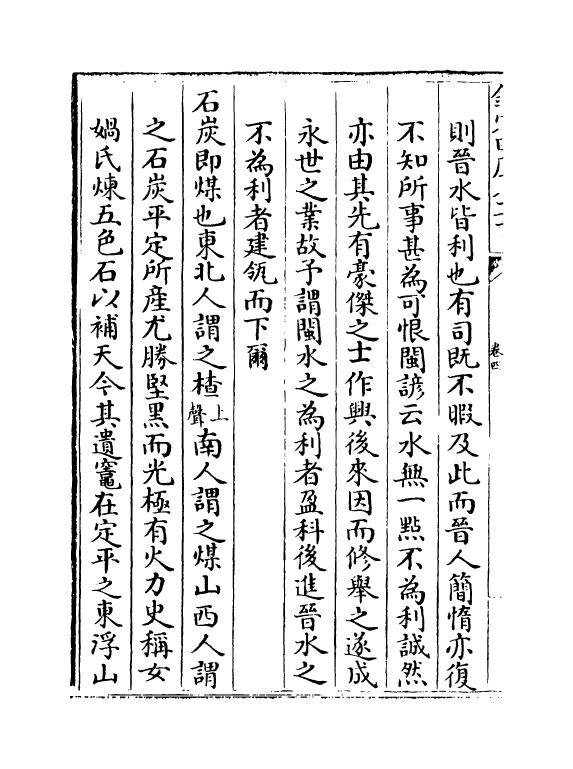 則晉水皆利也有司既不暇及此而晉人簡惰亦復
不知所事甚為可恨閩諺云水無一㸃不為利誠然
亦由其先有豪傑之士作興後來因而修舉之遂成
永世之業故予謂閩水之為利者盈科後進晉水之
不為利者建瓴而下爾
石炭即煤也東北人謂之楂上聲南人謂之煤山西人謂
之石炭平定所産尤勝堅黑而光極有火力史稱女
媧氏煉五色石以補天今其遺竈在定平之東浮山
卷四